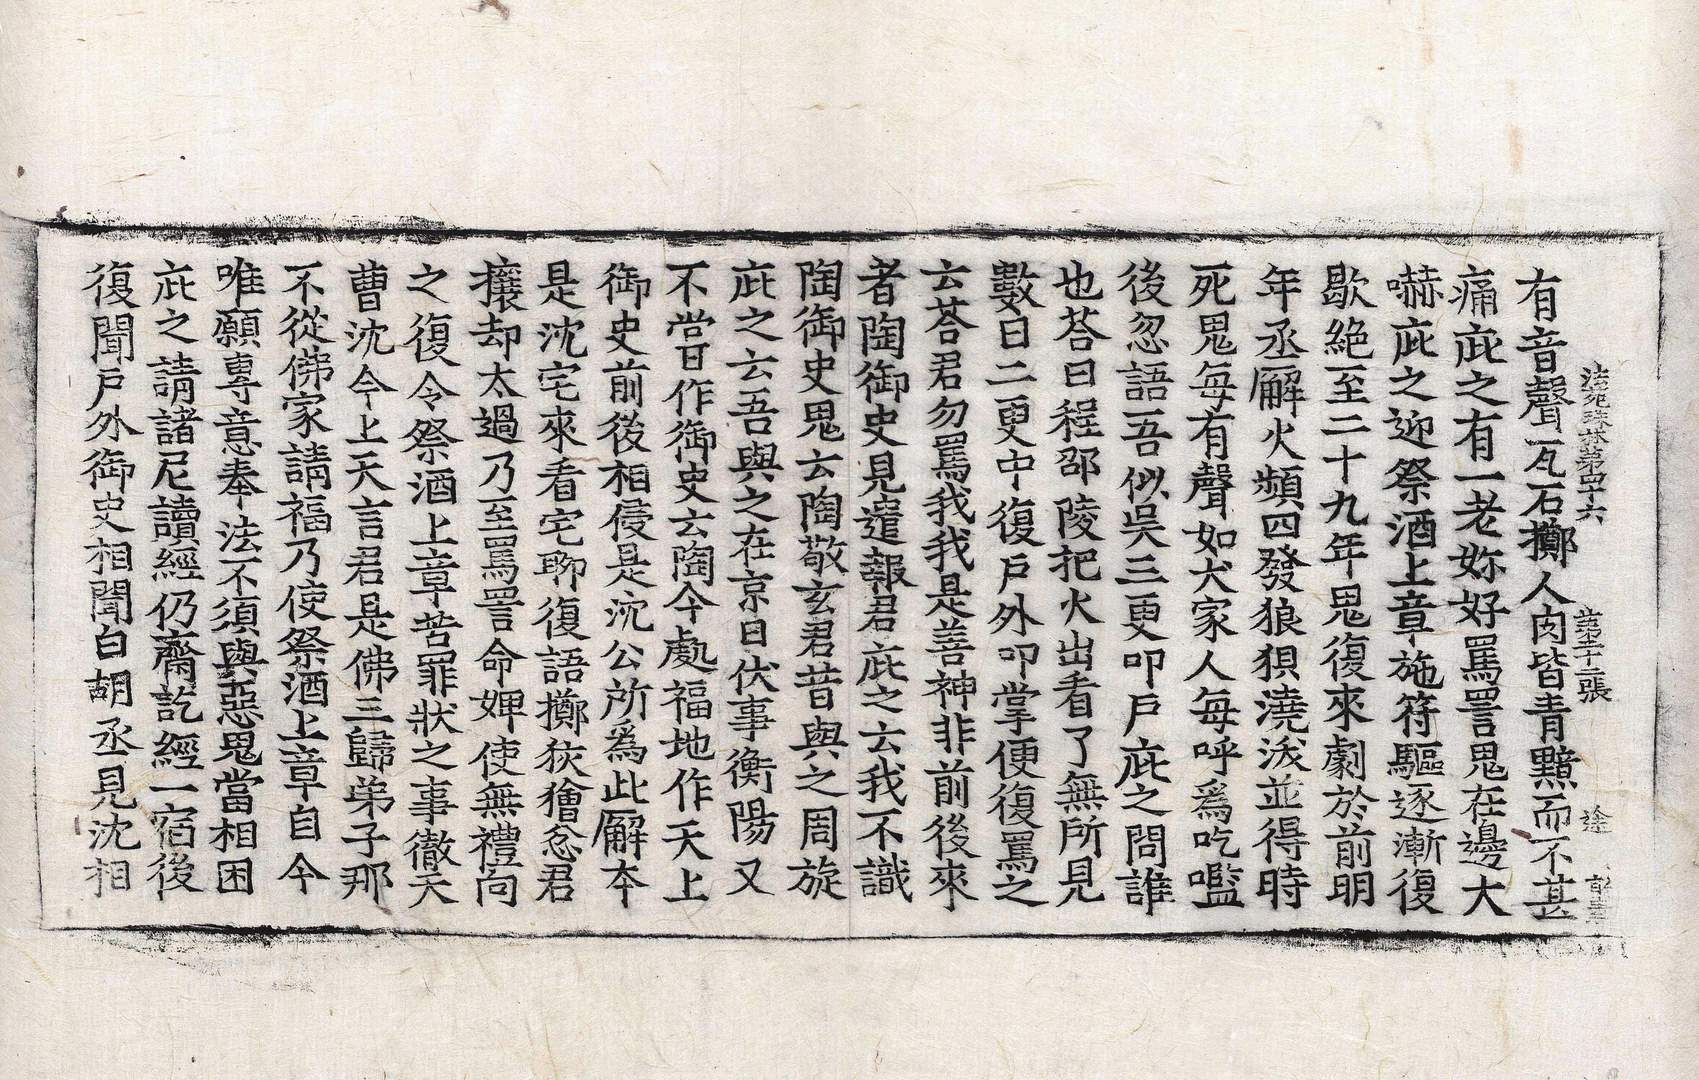 法苑珠林第四十六 第十二張 途
有音聲瓦石擲人肉皆青黯而不甚
痛庇之有一老妳好罵詈鬼在邊大
嚇庇之迎祭酒上章施符驅逐漸復
歇絶至二十九年鬼復來劇於前明
年丞廨火頻四發狼狽澆沃並得時
死鬼每有聲如犬家人每呼爲吃㘕
後忽語吾似吳三更叩戶庇之問誰
也荅曰程邵陵把火出看了無所見
數日二更中復戶外叩掌便復罵之
云荅君勿罵我我是善神非前後來
者陶御史見遣報君庇之云我不識
陶御史鬼云陶敬玄君昔與之周旋
庇之云吾與之在京日伏事衡陽又
不嘗作御史云陶今處福地作天上
御史前後相侵是沈公所爲此廨本
是沈宅來看宅聊復語擲狡獪忿君
攘却太過乃至罵詈命婢使無禮向
之復令祭酒上章苦罪狀之事徹天
曹沈今上天言君是佛三歸弟子那
不從佛家請福乃使祭酒上章自今
唯願專意奉法不須與惡鬼當相困
庇之請諸尼讀經仍齋訖經一宿後
復聞戶外御史相聞白胡丞見沈相